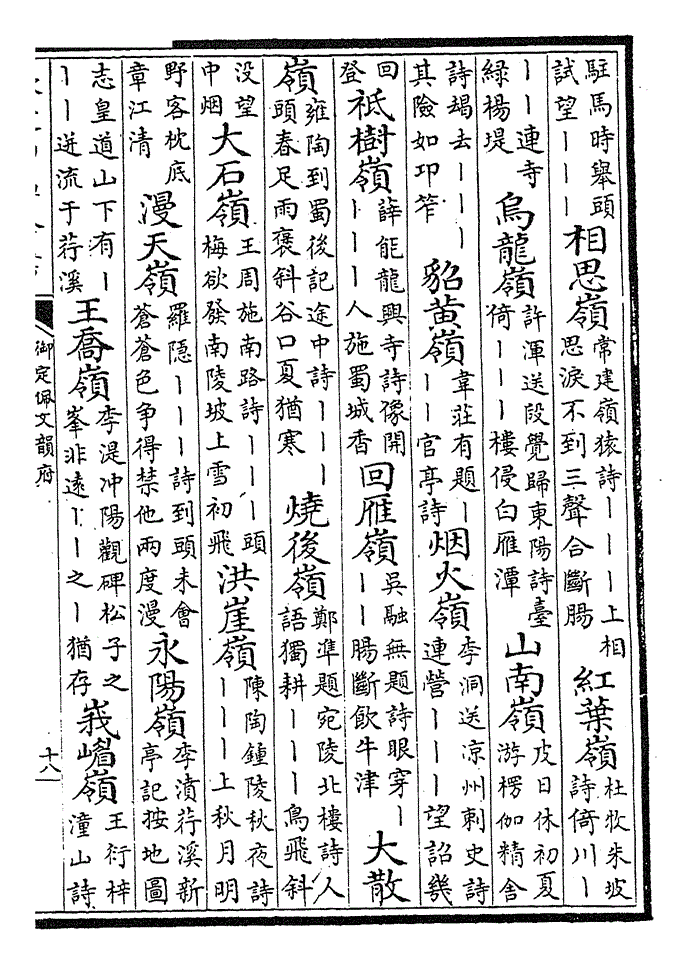 駐馬時舉頭試望丨丨丨相思嶺常建嶺猿詩丨丨丨上相思淚不到三聲合斷腸紅葉嶺杜牧朱坡詩倚川丨
丨丨連寺緑楊堤烏龍嶺許渾送段覺歸東陽詩臺倚丨丨丨樓侵白雁潭山南嶺皮日休初夏游楞伽精舍
詩朅去丨丨丨其險如邛笮貂黄嶺韋莊有題丨丨丨官亭詩烟火嶺李洞送凉州刺史詩連營丨丨丨望詔幾
回登祗樹嶺薛能龍興寺詩像開丨丨丨人施蜀城香回雁嶺吳融無題詩眼穿丨丨丨腸斷飲牛津大散
嶺雍陶到蜀後記途中詩丨丨丨頭春足雨褒斜谷口夏猶寒燒後嶺鄭準題宛陵北樓詩人語獨耕丨丨丨鳥飛斜
没望中烟大石嶺王周施南路詩丨丨丨頭梅欲發南陵坡上雪初飛洪崖嶺陳陶鍾陵秋夜詩丨丨丨上秋月明
野客枕底章江清漫天嶺羅隱丨丨丨詩到頭未會蒼蒼色争得禁他兩度漫永陽嶺李濆荇溪新亭記按地圖
志皇道山下有丨丨丨迸流于荇溪王喬嶺李湜冲陽觀碑松子之峯非遠丨丨之丨猶存峩嵋嶺王衍梓潼山詩
御定佩文韻府
十八